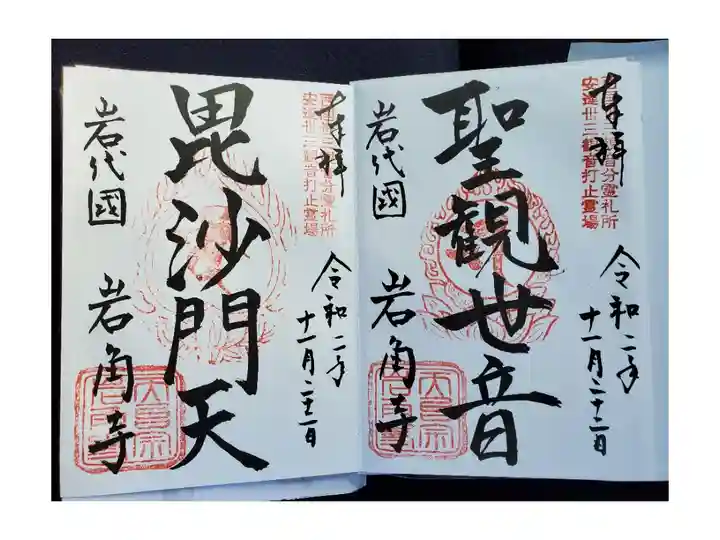 奉拝
分霊札所
安達卅三觀音打止霊場
令和二年
十一月二十二日
聖観世音
岩代國
岩角寺
奉拝
分霊札所
安達卅三觀音打止霊場
令和二年
十一月二十二日
毘沙門天
岩代國
岩角寺